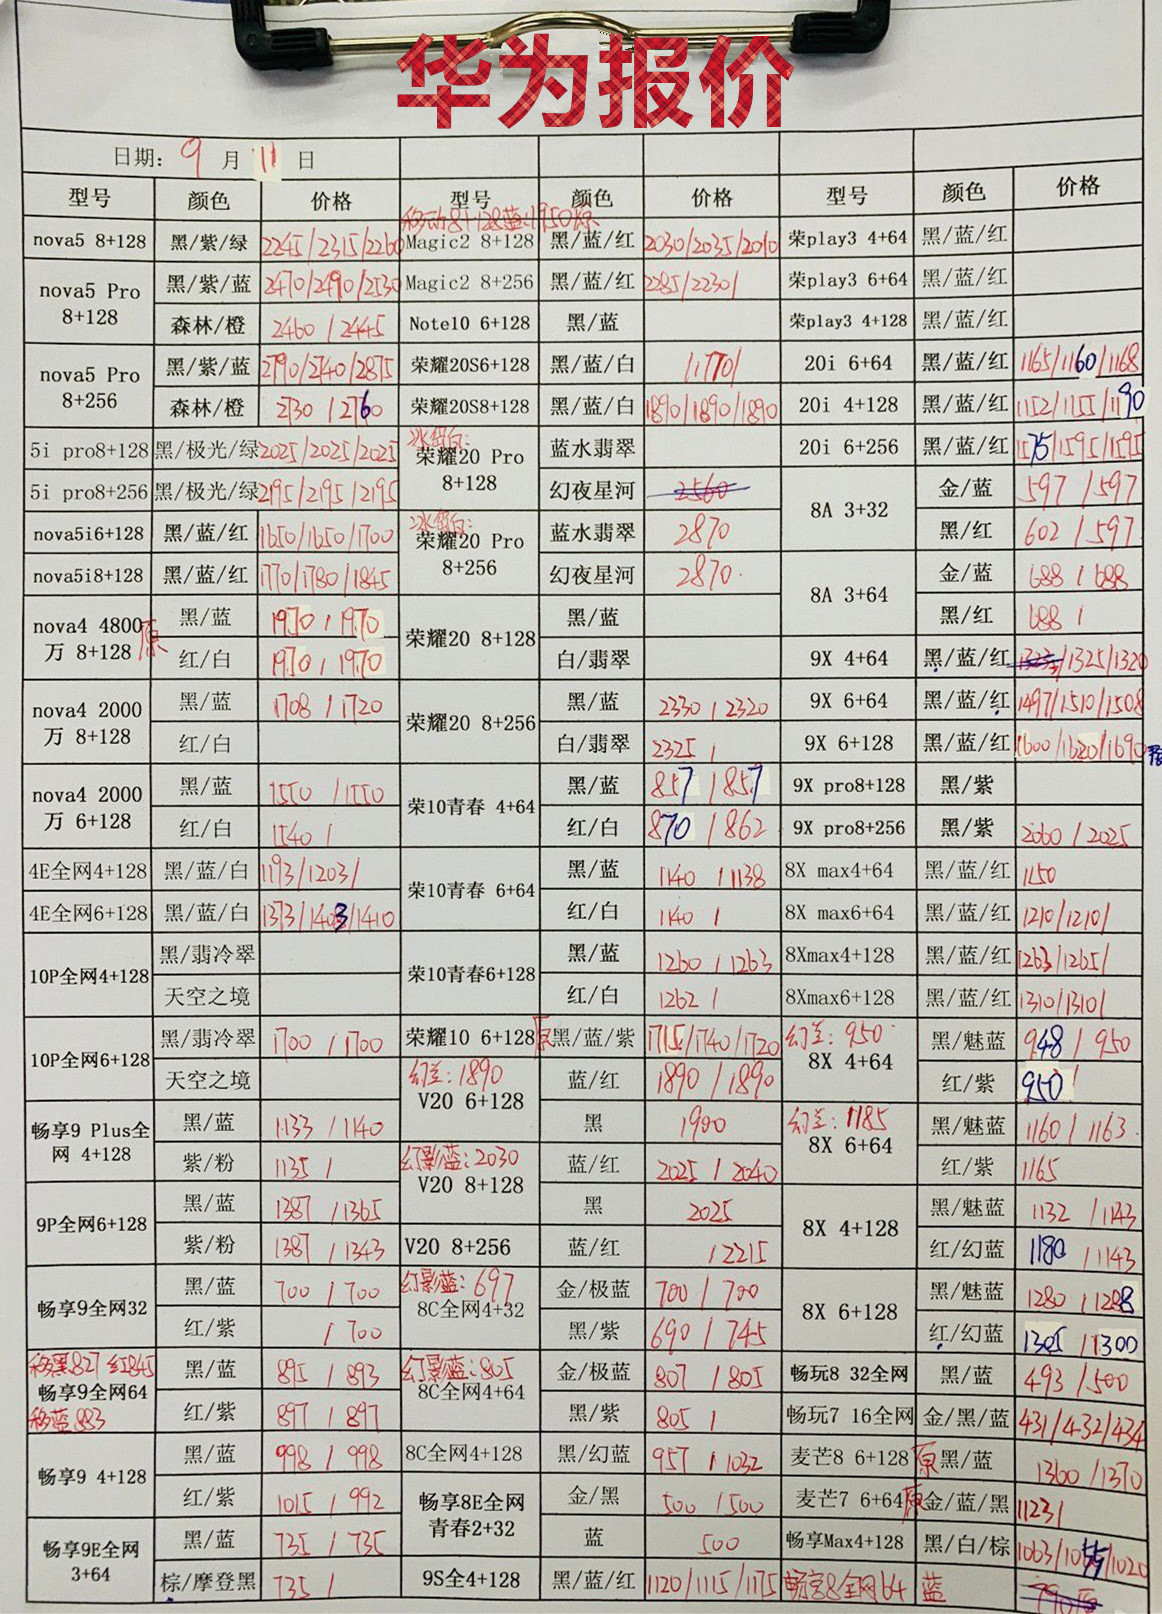 华为报价
日期：9月11日
型号 颜色 价格 型号 颜色 价格 型号 颜色 价格
移动8+128蓝:1950原
nova5 8+128 黑/紫/绿 2245/2315/2260 Magic2 8+128 黑/蓝/红 2030/2035/2010 荣play3 4+64 黑/蓝/红
nova5 Pro 8+128 黑/紫/蓝 2470/2490/2530 Magic2 8+256 黑/蓝/红 2285/2230/ 荣play3 6+64 黑/蓝/红
森林/橙 2460/2445 Note10 6+128 黑/蓝 荣play3 4+128 黑/蓝/红
nova5 Pro 8+256 黑/紫/蓝 2790/2740/2875 荣耀20S6+128 黑/蓝/白 /1770/ 20i 6+64 黑/蓝/红 1165/1160/1168
森林/橙 2730/2760 荣耀20S8+128 黑/蓝/白 1890/1890/1890 20i 4+128 黑/蓝/红 1152/1155/1190
5i pro8+128 黑/极光/绿 2025/2025/2025 冰岛白: 荣耀20 Pro 8+128 蓝水翡翠 20i 6+256 黑/蓝/红 1575/1595/1595
5i pro8+256 黑/极光/绿 2195/2195/2195 幻夜星河 2560 8A 3+32 金/蓝 597/597
nova5i6+128 黑/蓝/红 1650/1650/1700 冰岛白: 荣耀20 Pro 8+256 蓝水翡翠 2870 黑/红 602/597
nova5i8+128 黑/蓝/红 1770/1780/1845 幻夜星河 2870 8A 3+64 金/蓝 688/688
nova4 4800万 8+128 原 黑/蓝 1970/1970 荣耀20 8+128 黑/蓝 黑/红 688/
红/白 1970/1970 白/翡翠 9X 4+64 黑/蓝/红 /1325/1320
nova4 2000万 8+128 黑/蓝 1708/1720 荣耀20 8+256 黑/蓝 2330/2320 9X 6+64 黑/蓝/红 1497/1510/1508
红/白 白/翡翠 2325/ 9X 6+128 黑/蓝/红 1600/1620/1690
nova4 2000万 6+128 黑/蓝 1550/1550 荣10青春 4+64 黑/蓝 857/857 9X pro8+128 黑/紫
红/白 1540/ 红/白 870/862 9X pro8+256 黑/紫 2060/2025
4E全网4+128 黑/蓝/白 1193/1203/ 荣10青春 6+64 黑/蓝 1140/1138 8X max4+64 黑/蓝/红 1150
4E全网6+128 黑/蓝/白 1373/1403/1410 红/白 1140/ 8X max6+64 黑/蓝/红 1210/1210/
10P全网4+128 黑/翡冷翠 荣10青春6+128 黑/蓝 1260/1263 8Xmax4+128 黑/蓝/红 1263/1265/
天空之境 红/白 1262/ 8Xmax6+128 黑/蓝/红 1310/1310/
10P全网6+128 黑/翡冷翠 1700/1700 荣耀10 6+128 原 黑/蓝/紫 1715/1740/1720 幻兰: 950 8X 4+64 黑/魅蓝 948/950
天空之境 幻兰: 1890 V20 6+128 蓝/红 1890/1890 红/紫 950/
畅享9 Plus全网 4+128 黑/蓝 1133/1140 黑 1900 幻兰: 1185 8X 6+64 黑/魅蓝 1160/1163
紫/粉 1135/ 幻影蓝: 2030 V20 8+128 蓝/红 2025/2040 红/紫 1165
9P全网6+128 黑/蓝 1387/1365 黑 2025 8X 4+128 黑/魅蓝 1132/1143
紫/粉 1387/1343 V20 8+256 蓝/红 /2215 红/幻蓝 1180/1143
畅享9全网32 黑/蓝 700/700 幻影蓝: 697 8C全网4+32 金/极蓝 700/700 8X 6+128 黑/魅蓝 1280/1288
红/紫 /700 黑/紫 690/745 红/幻蓝 1305/1300
移黑827 红845 畅享9全网64 移蓝883 黑/蓝 895/893 幻影蓝: 805 8C全网4+64 金/极蓝 807/805 畅玩8 32全网 黑/蓝 493/500
红/紫 897/897 黑/紫 805/ 畅玩7 16全网 金/黑/蓝 431/432/434
畅享9 4+128 黑/蓝 998/998 8C全网4+128 黑/幻蓝 957/1032 麦芒8 6+128 原 黑/蓝 1360/1370
红/紫 1015/992 畅享8E全网青春2+32 金/黑 500/500 麦芒7 6+64 原 金/蓝/黑 1123/
畅享9E全网 3+64 黑/蓝 735/735 蓝 500 畅享Max4+128 黑/白/棕 1063/ /1020
棕/摩登黑 735/ 9S全4+128 黑/蓝/红 1120/1115/1175 畅享8全网64 蓝